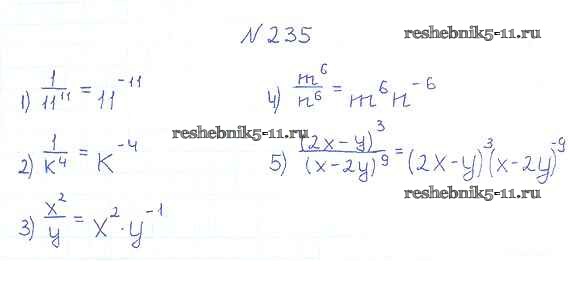 № 235
reshebnik5-11.ru
1) 1/11¹¹ = 11⁻¹¹
4) m⁶/n⁶ = m⁶n⁻⁶
reshebnik5-11.ru
2) 1/k⁴ = k⁻⁴
5) (2x-y)³/(x-2y)⁹ = (2x-y)³(x-2y)⁻⁹
reshebnik5-11.ru
3) x²/y = x²·y⁻¹